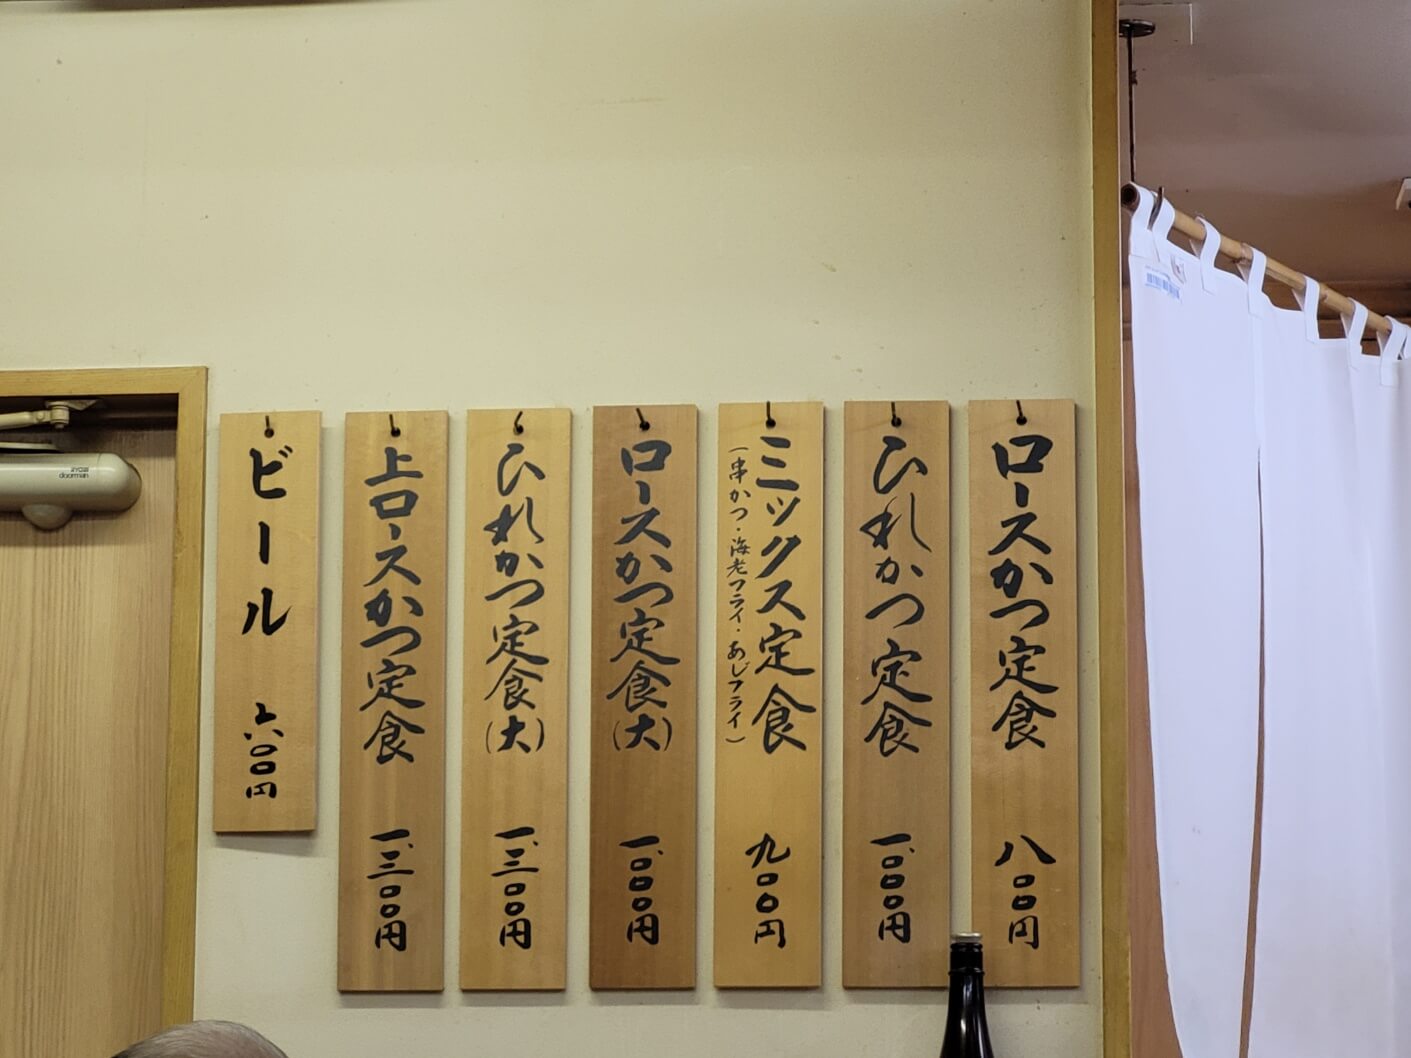 ロースかつ定食 八〇〇円
ひれかつ定食 一、〇〇〇円
ミックス定食 九〇〇円
(串かつ・海老フライ・あじフライ)
ロースかつ定食(大) 一、〇〇〇円
ひれかつ定食(大) 一、三〇〇円
上ロースかつ定食 一、三〇〇円
ビール 六〇〇円
RYOBI
doorman